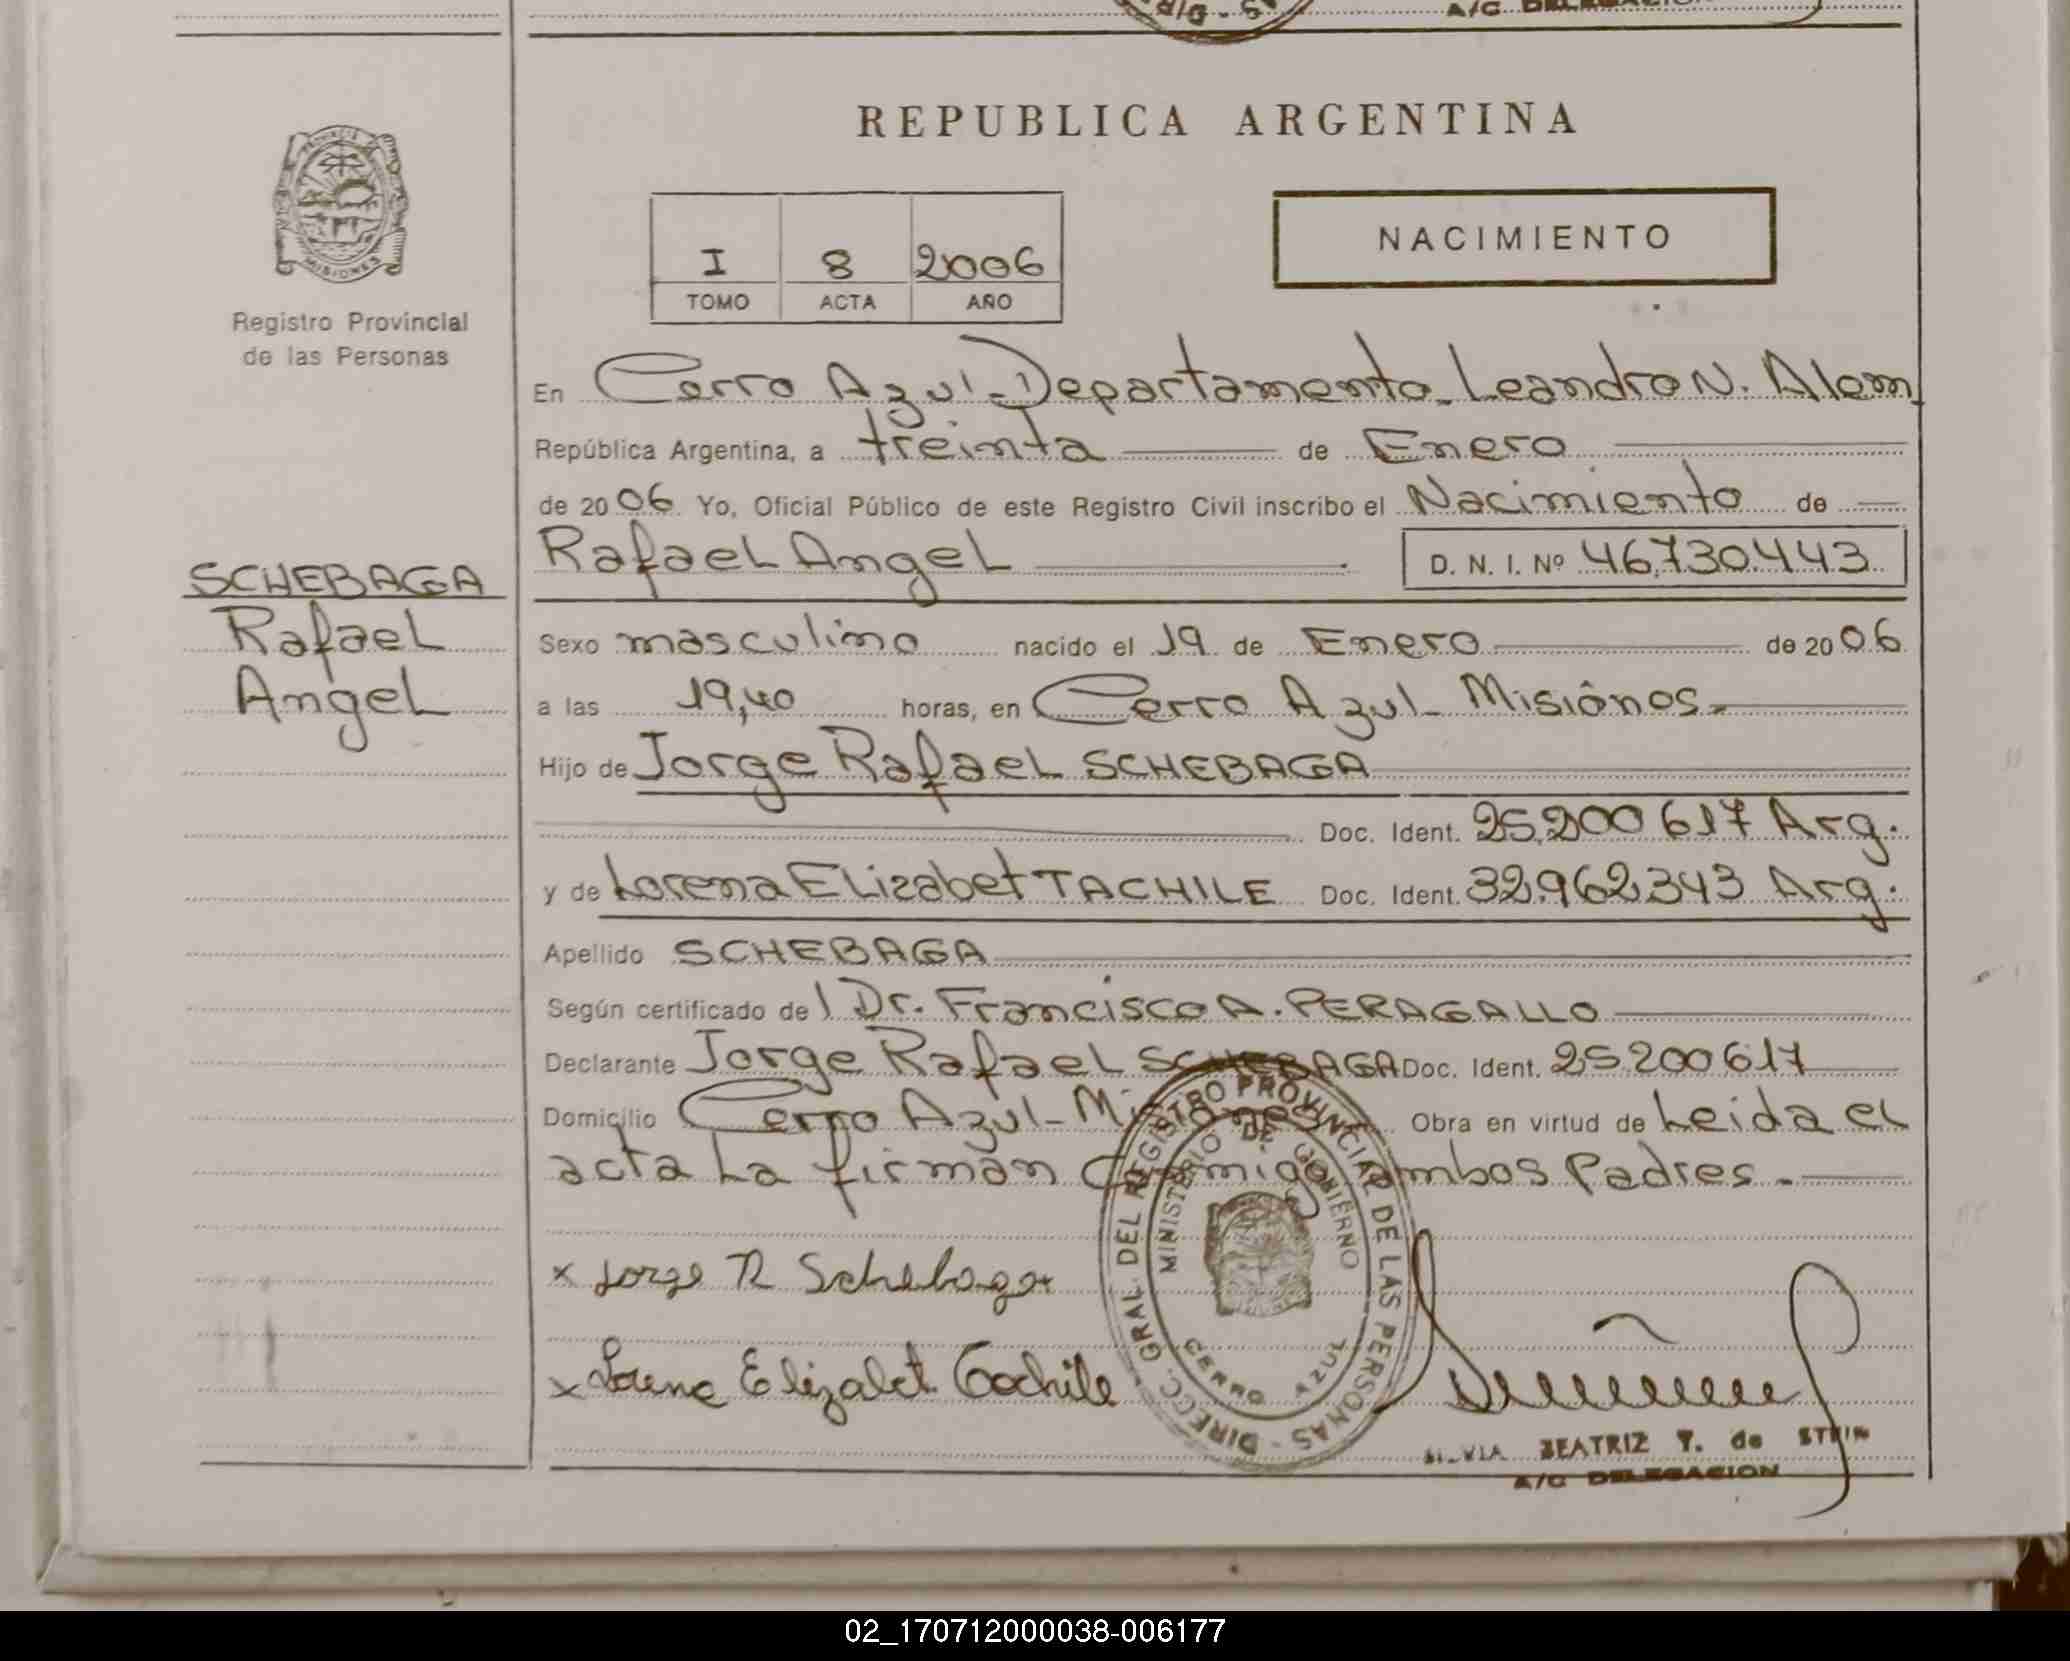 A/C DELEGACION
REPUBLICA ARGENTINA
PROVINCIA DE MISIONES
Registro Provincial
de las Personas
I 8 2006
TOMO ACTA AÑO
NACIMIENTO
En Cerro Azul - Departamento - Leandro N. Alem
República Argentina, a treinta de Enero
de 2006 Yo, Oficial Público de este Registro Civil inscribo el Nacimiento de
Rafael Angel D. N. I. Nº 46.730.443
SCHEBAGA
Rafael
Angel
Sexo masculino nacido el 19 de Enero de 2006
a las 19,40 horas, en Cerro Azul - Misiones -
Hijo de Jorge Rafael SCHEBAGA
Doc. Ident. 25.200 617 Arg.
y de Lorena Elizabet TACHILE Doc. Ident. 32.962.343 Arg.
Apellido SCHEBAGA
Según certificado del Dr. Francisco A. PERAGALLO
Declarante Jorge Rafael SCHEBAGA Doc. Ident. 25.200 617
Domicilio Cerro Azul - Misiones Obra en virtud de Leida el
acta La firman conmigo ambos Padres. -
x Jorge R Schebaga
x Lorena Elizabet Tachile
DIRECC. GRAL. DEL REGISTRO PROVINCIAL DE LAS PERSONAS -
MINISTERIO DE GOBIERNO
CERRO AZUL
SILVIA BEATRIZ T. de STEIN
A/C DELEGACION
02_170712000038-006177